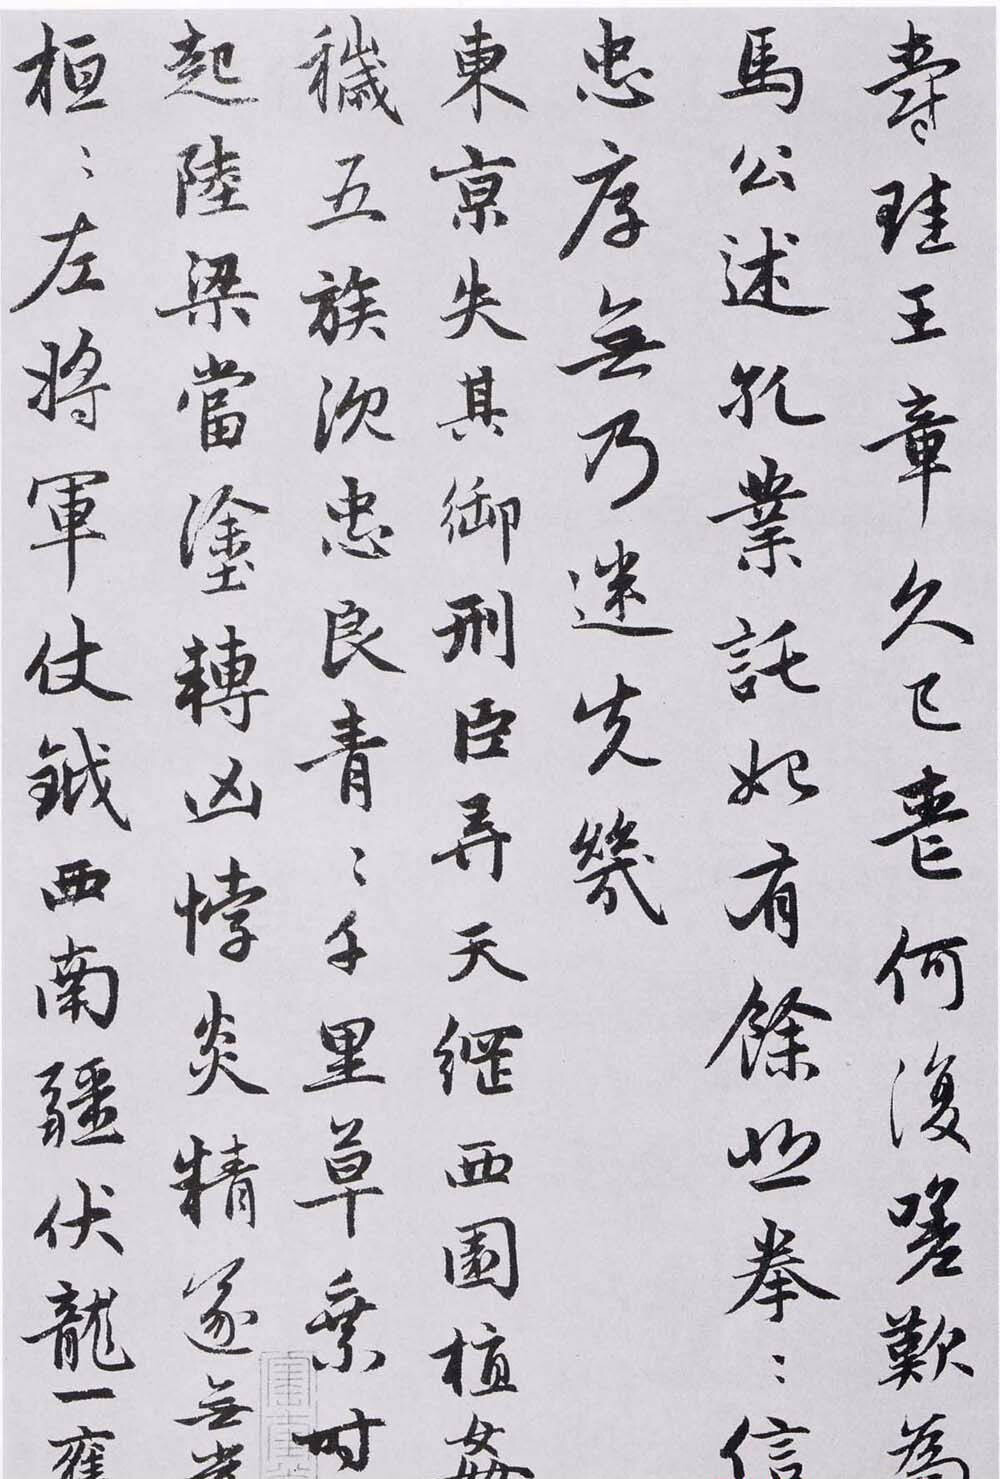 青珪玉章久已丧何復嗟歎為
馬公述孔業託始有餘悲拳〻信
忠厚無乃迷先幾
東京失其御刑臣弄天綱西園植姦
穢五族沉忠良青〻千里草乘時
起陸梁當塗轉凶悖炎精遂無
桓〻左將軍仗鉞西南疆伏龍一